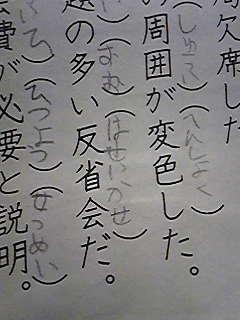 欠席した
（しゅうい）（へんしょく）
の周囲が変色した。
（おお）
の多い反省会だ。
ひ）（ひつよう）（せつめい）
会費が必要と説明。